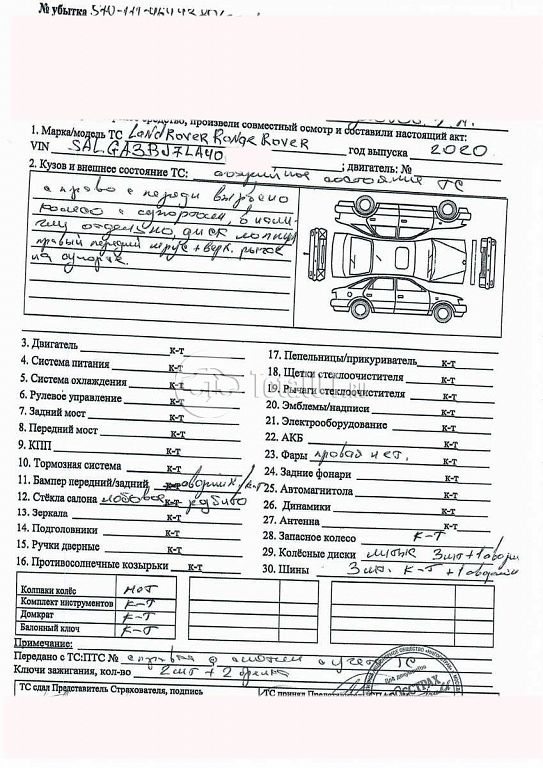 № убытка
средство, произвели совместный осмотр и составили настоящий акт:
1. Марка/модель ТС Land Rover Range Rover
VIN SALGA3BJ7LA40 год выпуска 2020
2. Кузов и внешнее состояние ТС: аварийное состояние ТС ; двигатель: №
справо с переди вырвано
колесо с супортом, в нали-
чии отдельно, диск лопнул
правый передний + верх. рычаг
на супорте.
3. Двигатель к-т
4. Система питания к-т
5. Система охлаждения к-т
6. Рулевое управление к-т
7. Задний мост к-т
8. Передний мост к-т
9. КПП к-т
10. Тормозная система к-т
11. Бампер передний/задний аварийн к-т
12. Стёкла салона лобовое разбито
13. Зеркала к-т
14. Подголовники к-т
15. Ручки дверные к-т
16. Противосолнечные козырьки к-т
17. Пепельницы/прикуриватель к-т
18. Щетки стеклоочистителя к-т
19. Рычаги стеклоочистителя к-т
20. Эмблемы/надписи к-т
21. Электрооборудование к-т
22. АКБ к-т
23. Фары правой нет.
24. Задние фонари к-т
25. Автомагнитола к-т
26. Динамики к-т
27. Антенна к-т
28. Запасное колесо к-т
29. Колёсные диски литые 3шт + 1 аварийн
30. Шины 3шт. к-т + 1 аварийн
Колпаки колёс нет
Комплект инструментов к-т
Домкрат к-т
Балонный ключ к-т
Примечание:
Передано с ТС:ПТС № справка о снятии с учёта ТС
Ключи зажигания, кол-во 2шт + 2 брелка
ТС сдал Представитель Страхователя, подпись
ТС принял
Для документов